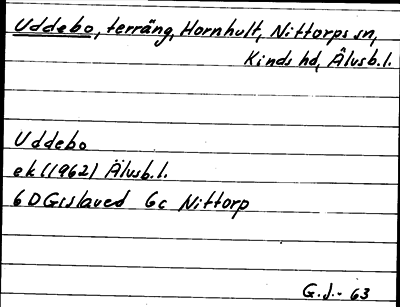 Uddebo, terräng, Hornhult, Nittorps sn,
Kinds hd, Älvsb.l.
Uddebo
ek (1962) Älvsb.l.
6 D Gislaved 6c Nittorp
G.J.- 63